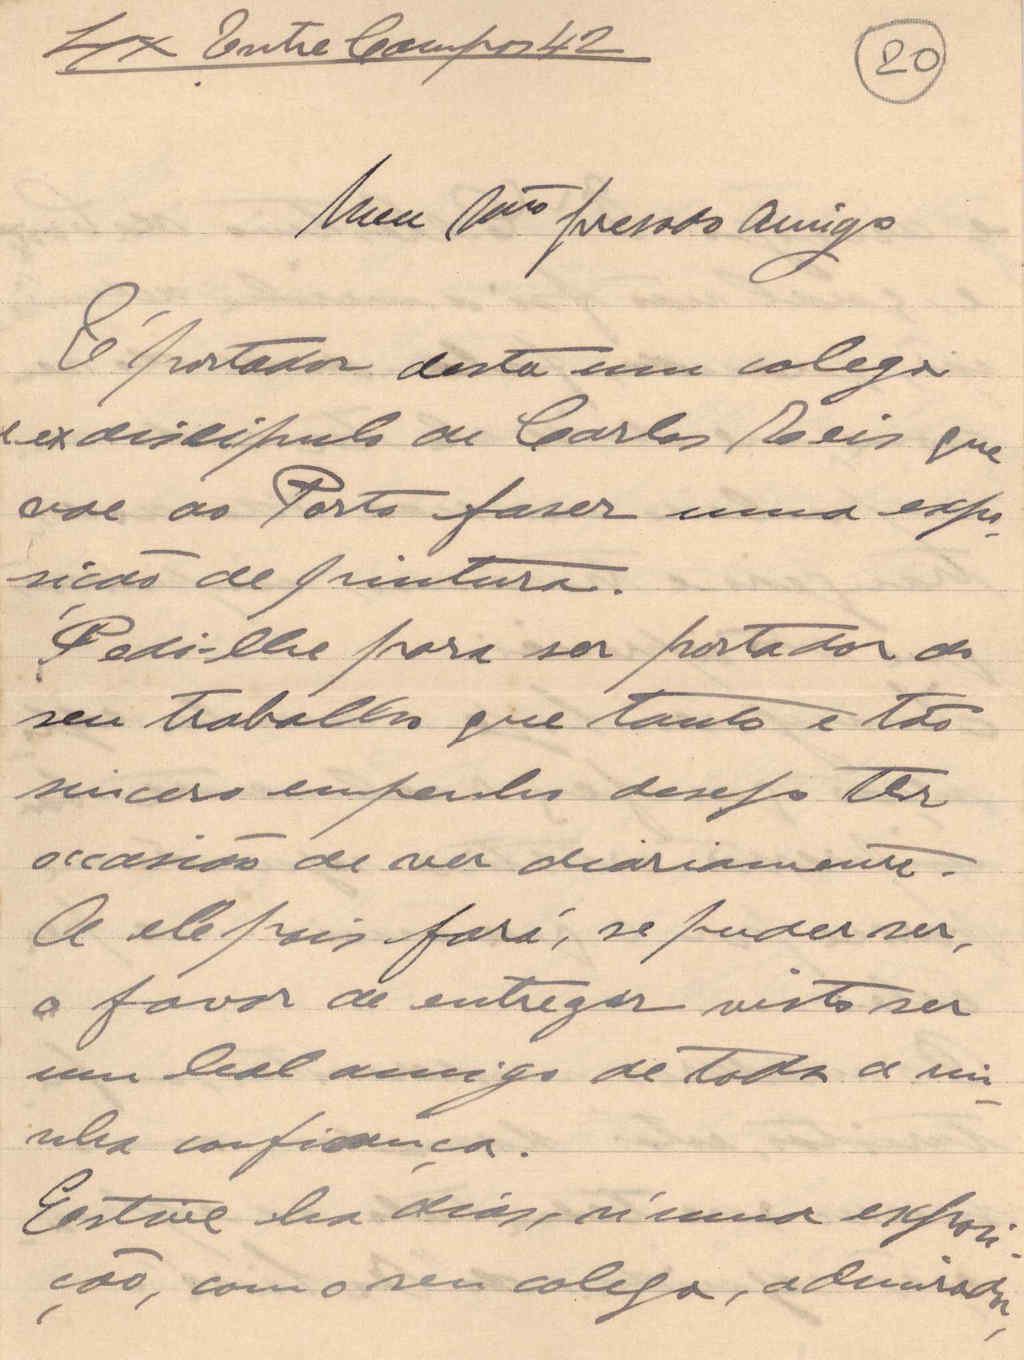 Lx Entre Campos 42
20
Meu mto presado Amigo
É portador desta um colega
e ex discipulo de Carlos Reis que
vae ao Porto faser uma expo-
sicão de pintura.
Pedi-lhe para ser portador do
seu trabalho que tanto e tão
sincero empenho desejo ter
occasião de ver diariamente.
A elle pois fará, se puder ser,
o favor de entregar visto ser
um leal amigo de toda a mi-
nha confiança.
Estive ha dias, n'uma exposi-
ção, com o seu colega, admirador,